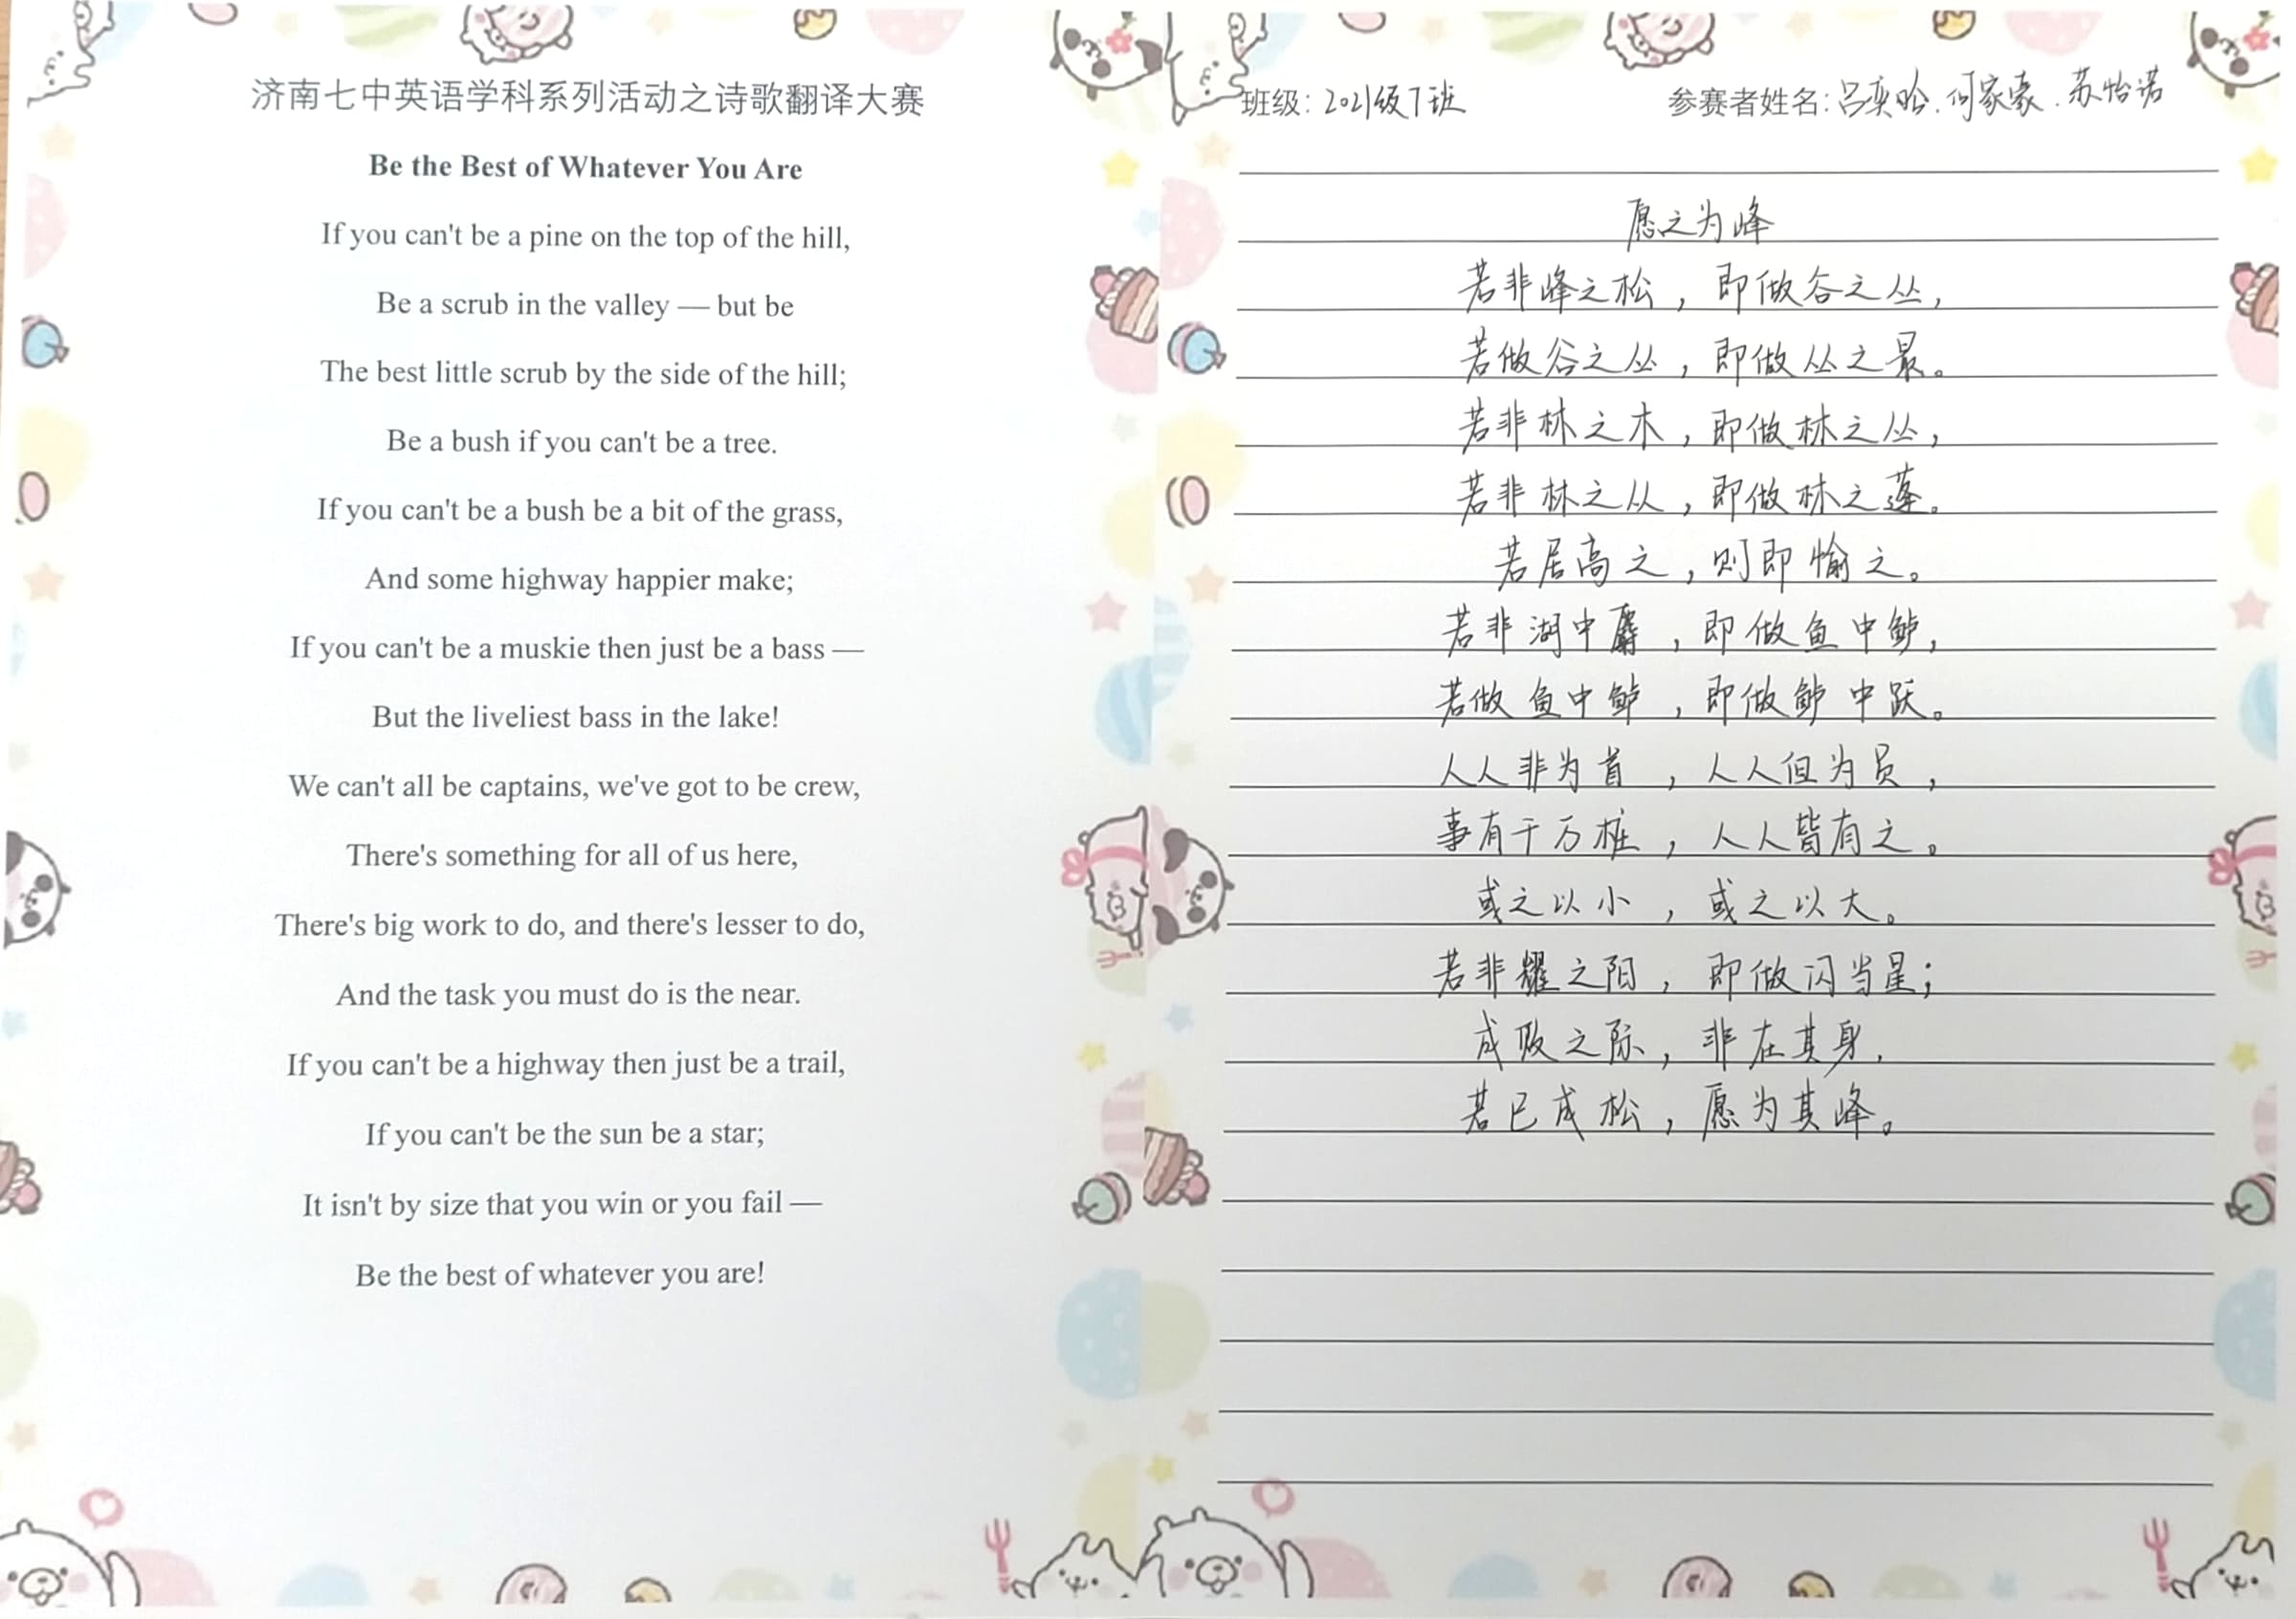 济南七中英语学科系列活动之诗歌翻译大赛
Be the Best of Whatever You Are
If you can't be a pine on the top of the hill,
Be a scrub in the valley — but be
The best little scrub by the side of the hill;
Be a bush if you can't be a tree.
If you can't be a bush be a bit of the grass,
And some highway happier make;
If you can't be a muskie then just be a bass —
But the liveliest bass in the lake!
We can't all be captains, we've got to be crew,
There's something for all of us here,
There's big work to do, and there's lesser to do,
And the task you must do is the near.
If you can't be a highway then just be a trail,
If you can't be the sun be a star;
It isn't by size that you win or you fail —
Be the best of whatever you are!
班级：2021级7班
参赛者姓名：吕奕晗．何家豪．苏怡诺
愿之为峰
若非峰之松，即做谷之丛，
若做谷之丛，即做丛之最。
若非林之木，即做林之丛，
若非林之从，即做林之蓬。
若居高之，则即愉之。
若非湖中麝，即做鱼中鲈，
若做鱼中鲈，即做鲈中跃。
人人非为首，人人但为员，
事有千万桩，人人皆有之。
或之以小，或之以大。
若非耀之阳，即做闪当星；
成败之际，非在其身．
若已成松，愿为其峰。